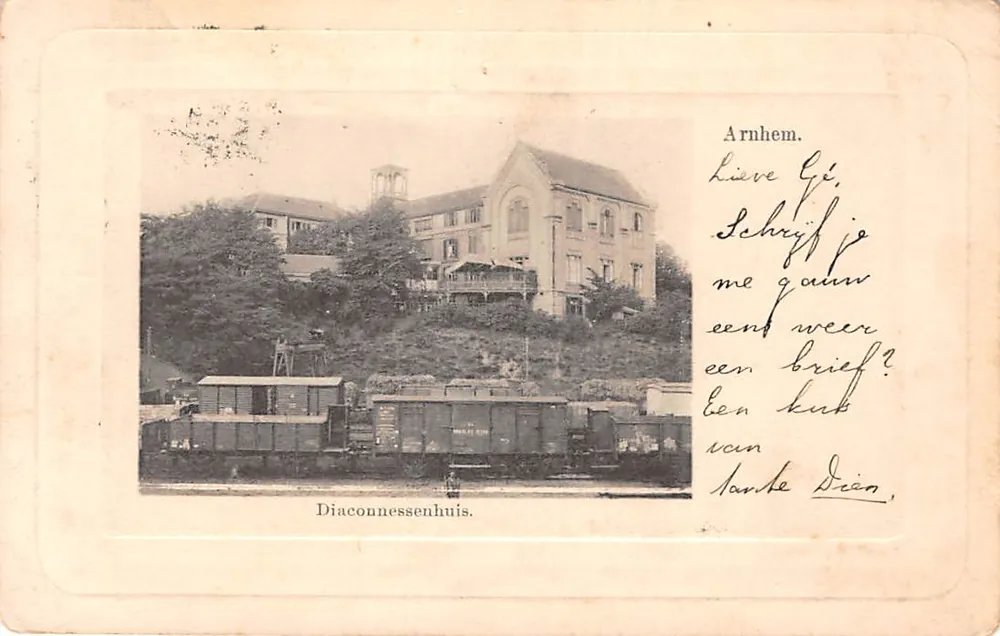 Arnhem.
Lieve Gé,
Schrijf je
me gauw
eens weer
een brief?
Een kus
van
tante Dien.
Diaconnessenhuis.